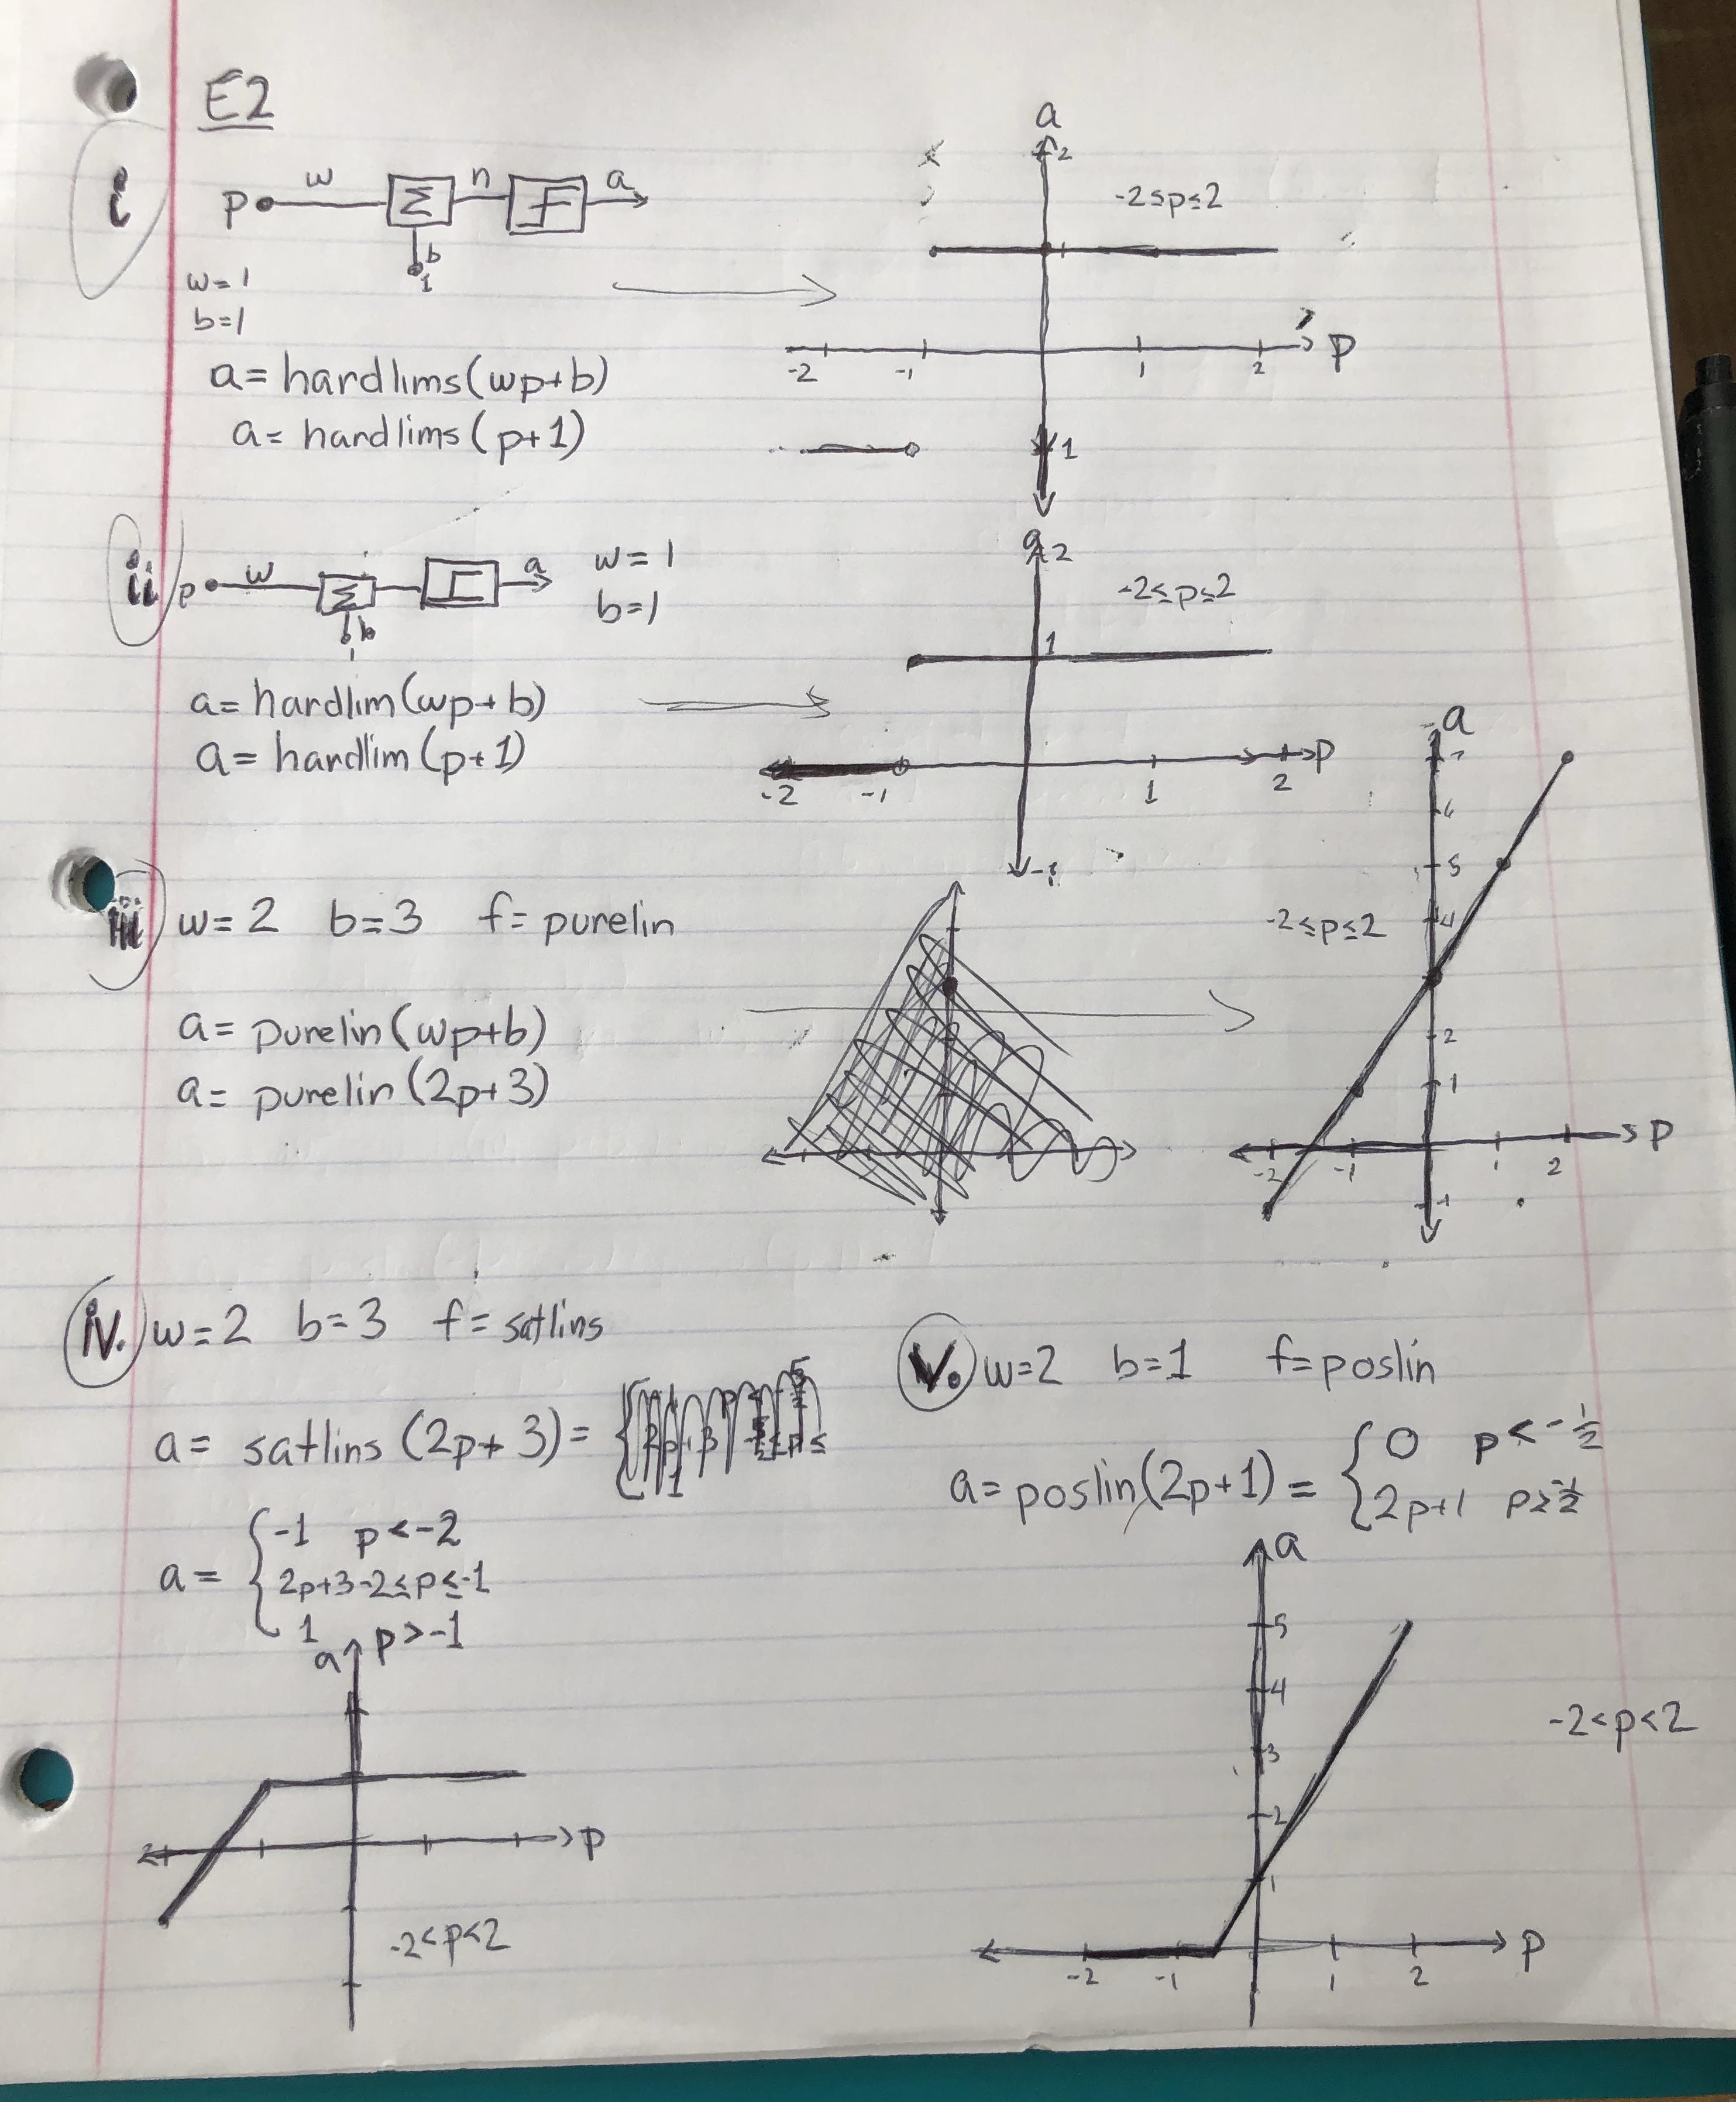 E2
i
a
2
p w Σ n a
-2≤p≤2
b
1
1
w=1
b=1
-2 -1 1 2 p
a= hardlims(wp+b)
a= hardlims(p+1)
1
ii
p w Σ a w=1
b b=1
1
a 2
-2≤p≤2
1
a= hardlim(wp+b)
a= hardlim(p+1)
-2 -1 1 2 p
-1
iii w=2 b=3 f= purelin
a= purelin(wp+b)
a= purelin(2p+3)
a
7
6
5
-2≤p≤2 4
2
1
-2 -1 1 2 p
-1
iv. w=2 b=3 f= satlins
a= satlins (2p+3)=
a= { -1 p<-2
2p+3 -2≤p≤-1
1 p>-1
a
p
-2<p<2
v. w=2 b=1 f=poslin
a= poslin(2p+1) = { 0 p<-1/2
2p+1 p≥-1/2
a
5
4
3
-2<p<2
2
1
-2 -1 1 2 p